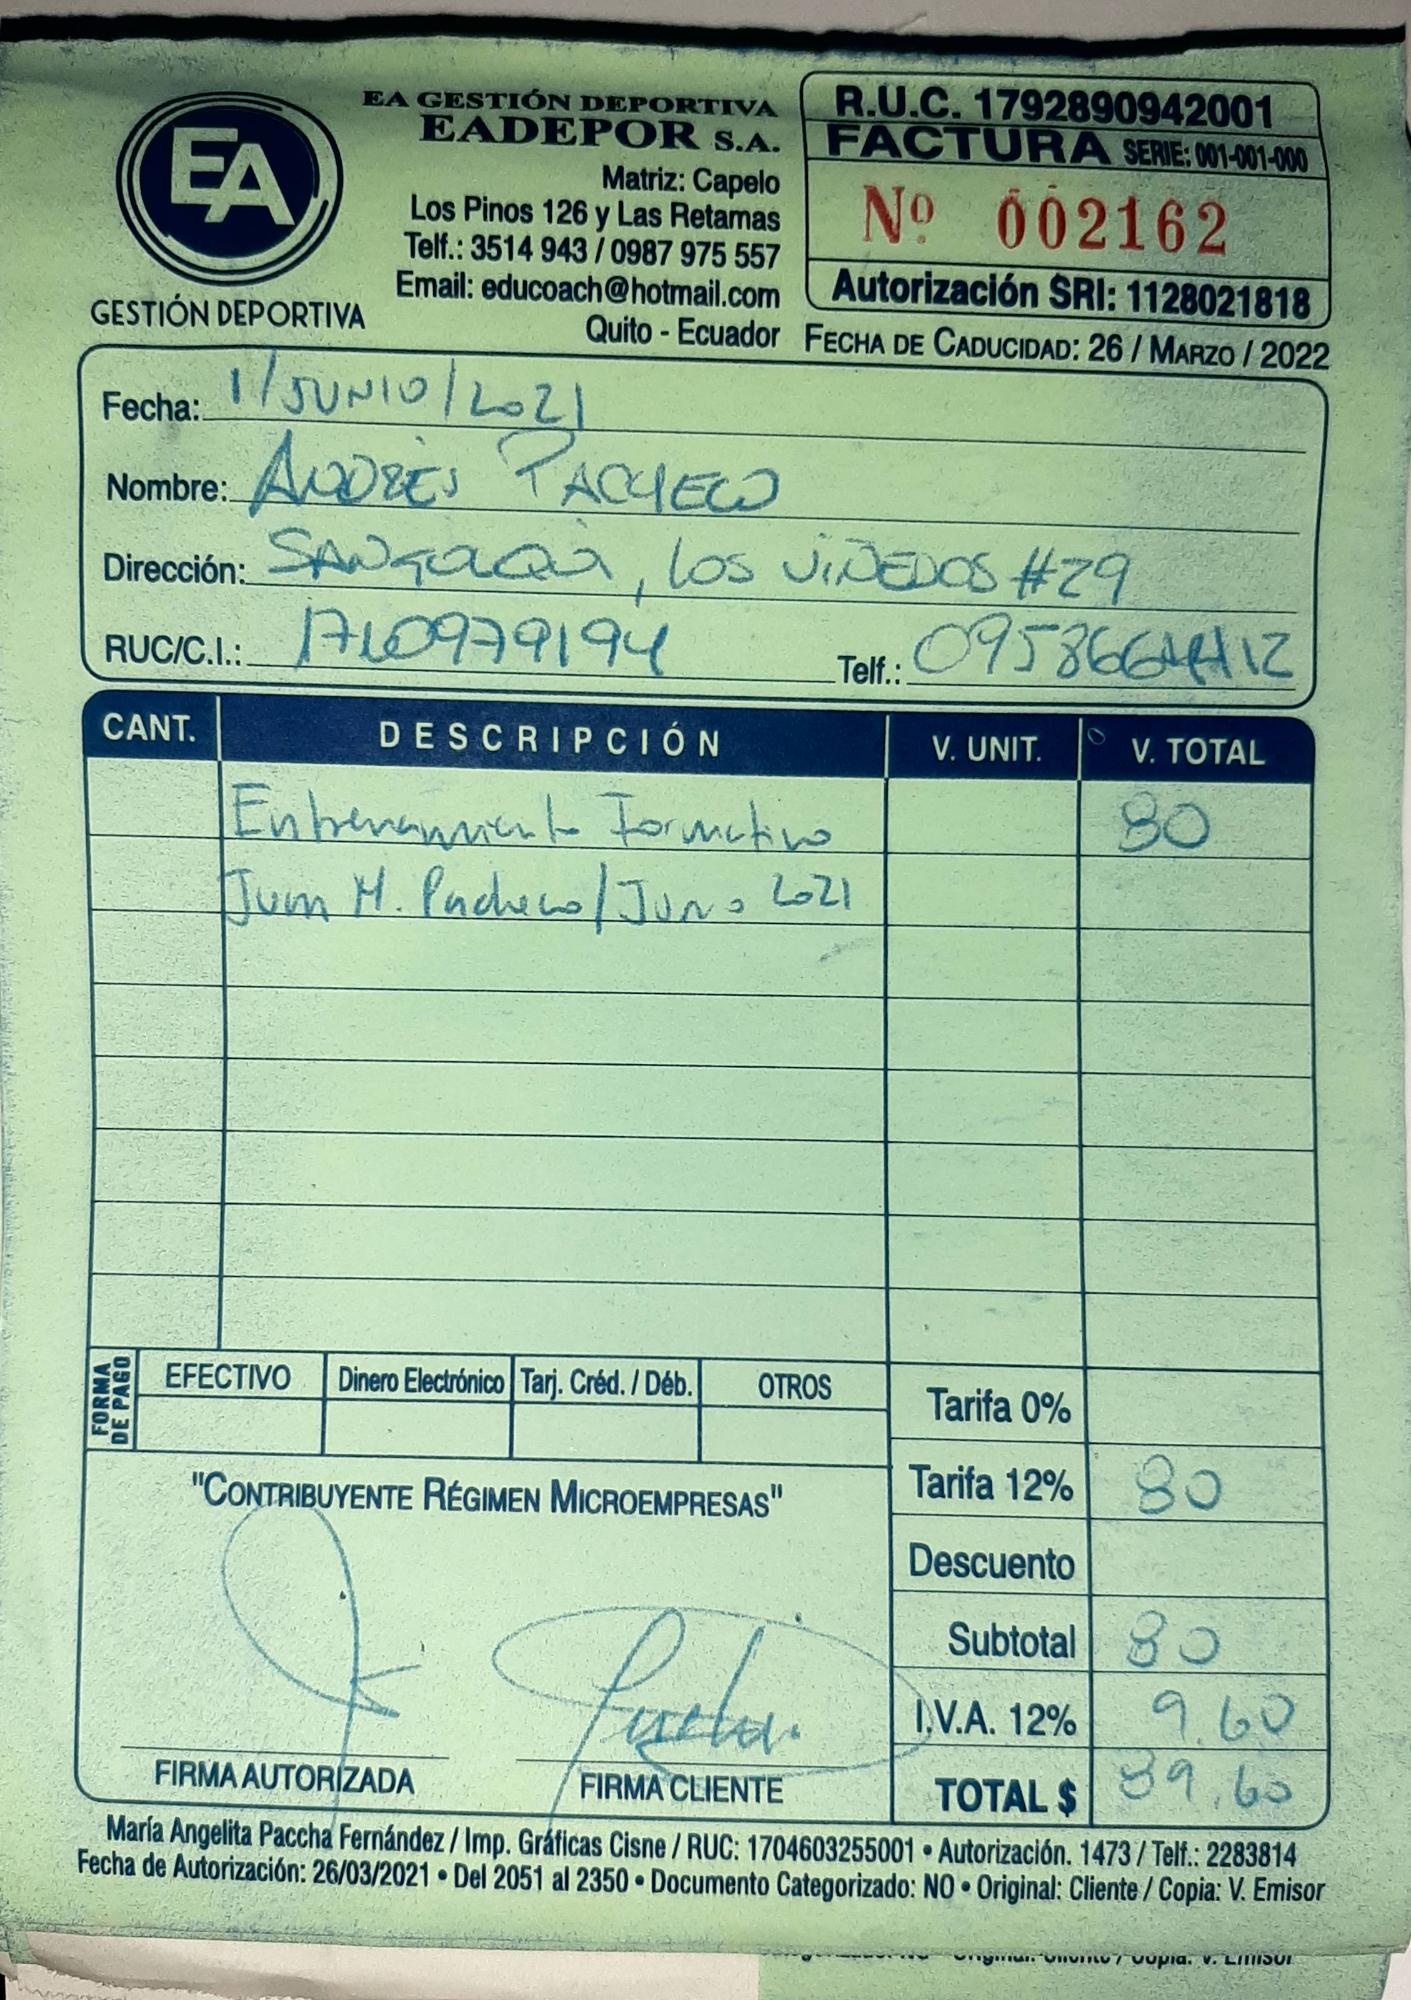 EA
GESTIÓN DEPORTIVA
EA GESTIÓN DEPORTIVA
EADEPOR S.A.
Matriz: Capelo
Los Pinos 126 y Las Retamas
Telf.: 3514 943 / 0987 975 557
Email: educoach@hotmail.com
Quito - Ecuador
R.U.C. 1792890942001
FACTURA SERIE: 001-001-000
Nº 002162
Autorización SRI: 1128021818
FECHA DE CADUCIDAD: 26 / MARZO / 2022
Fecha: 1/JUNIO/2021
Nombre: ANDRÉS PACHECO
Dirección: SANGOLQUÍ, LOS VIÑEDOS #29
RUC/C.I.: 1710979194 Telf.:
CANT. DESCRIPCIÓN V. UNIT. V. TOTAL
Entrenamiento Formativo 80
Juan M. Pacheco/Junio 2021
FORMA DE PAGO
EFECTIVO Dinero Electrónico Tarj. Créd. / Déb. OTROS
Tarifa 0%
Tarifa 12% 80
Descuento
Subtotal 80
I.V.A. 12% 9.60
TOTAL $ 89.60
"CONTRIBUYENTE RÉGIMEN MICROEMPRESAS"
FIRMA AUTORIZADA FIRMA CLIENTE
María Angelita Paccha Fernández / Imp. Gráficas Cisne / RUC: 1704603255001 • Autorización. 1473 / Telf.: 2283814
Fecha de Autorización: 26/03/2021 • Del 2051 al 2350 • Documento Categorizado: NO • Original: Cliente / Copia: V. Emisor
Original: Cliente / Copia: V. Emisor